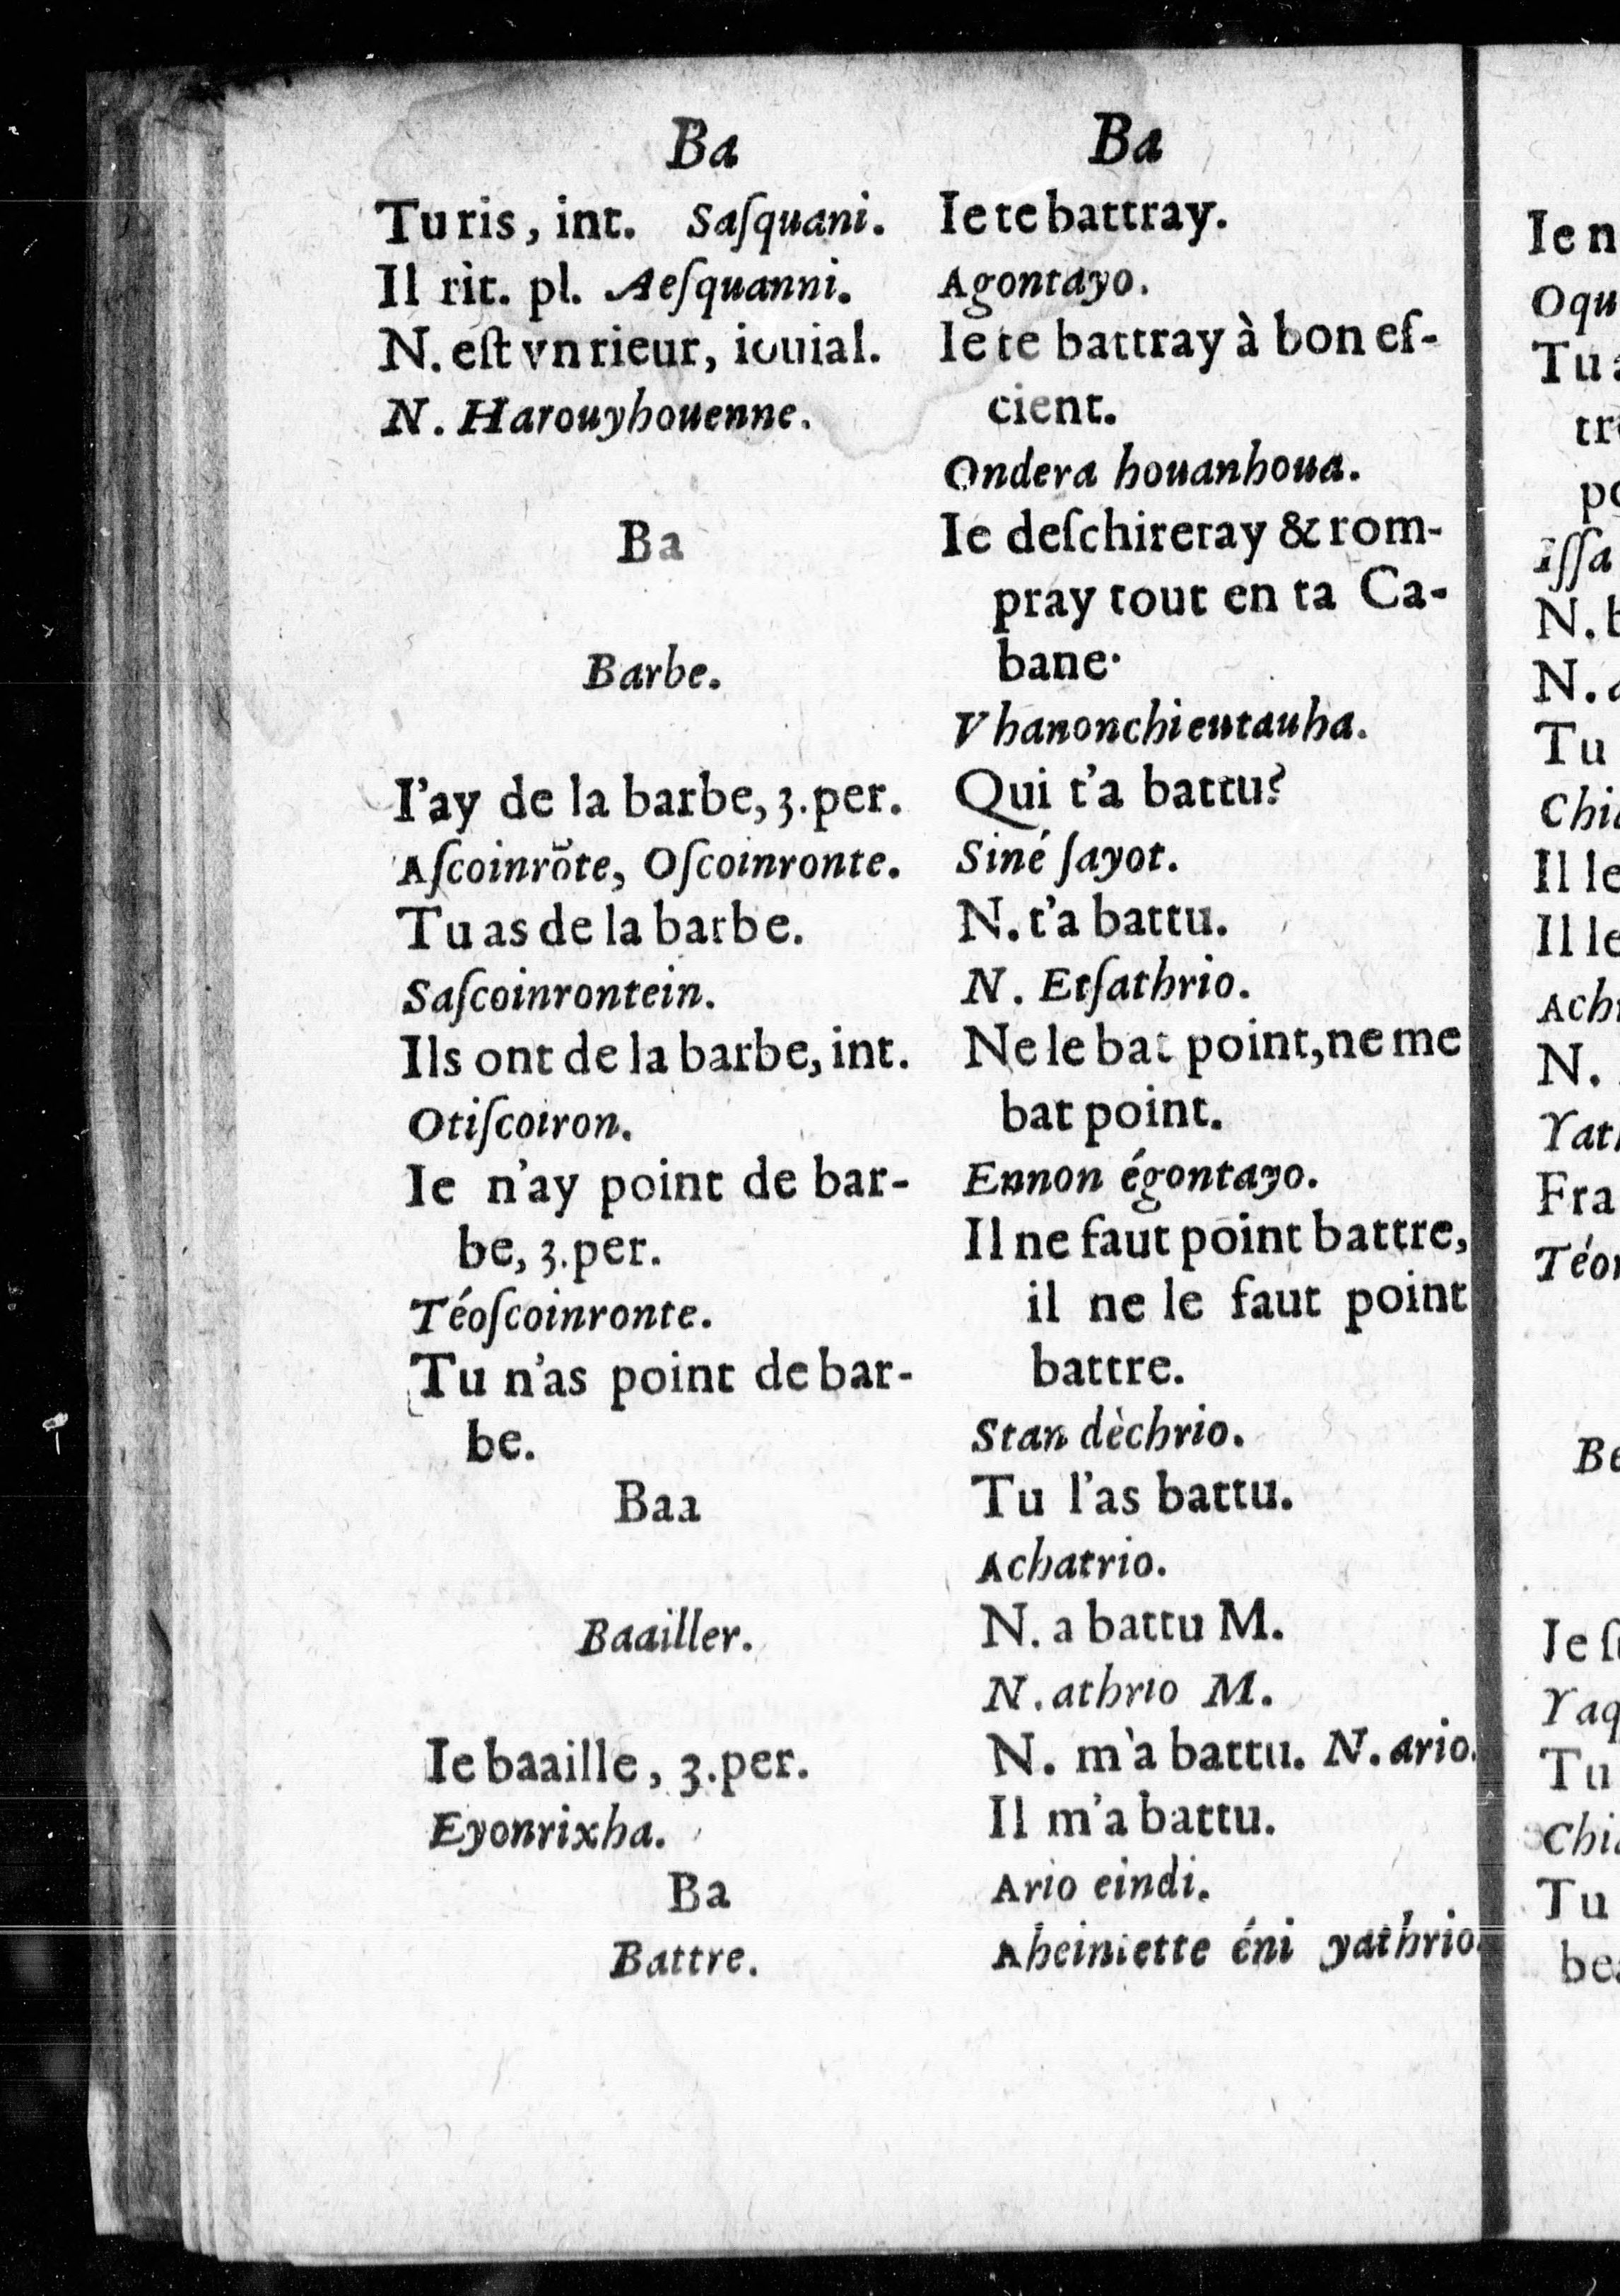 Ba
Tu ris, int. Saſquani.
Il rit. pl. Aeſquanni.
N. eſt vn rieur, iouial.
N. Harouyhouenne.
Ba
Barbe.
I'ay de la barbe, 3. per.
Aſcoinrõte, Oſcoinronte.
Tu as de la barbe.
Saſcoinrontein.
Ils ont de la barbe, int.
Otiſcoiron.
Ie n'ay point de bar-
be, 3. per.
Téoſcoinronte.
Tu n'as point de bar-
be.
Baa
Baailler.
Ie baaille, 3. per.
Eyonrixha.
Ba
Battre.
Ba
Ie te battray.
Agontayo.
Ie te battray à bon eſ-
cient.
Ondera houanhoua.
Ie deſchireray & rom-
pray tout en ta Ca-
bane.
Vhanonchieutauha.
Qui t'a battu?
Siné ſayot.
N. t'a battu.
N. Etſathrio.
Ne le bat point, ne me
bat point.
Ennon égontayo.
Il ne faut point battre,
il ne le faut point
battre.
Stan dèchrio.
Tu l'as battu.
Achatrio.
N. a battu M.
N. athrio M.
N. m'a battu. N. ario.
Il m'a battu.
Ario eindi.
éni yathrio
Ie n
Oqu
Tu
po
Iſſa
N. b
N.
Tu
Il le
Il le
N.
Fra
Be
Tu
Tu